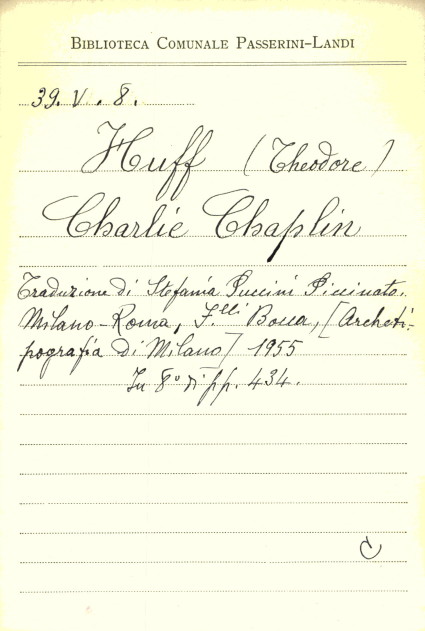 BIBLIOTECA COMUNALE PASSERINI-LANDI
39. V. 8.
Huff (Theodore)
Charlie Chaplin
Traduzione di Stefania Puccini Piccinato.
Milano-Roma, F.lli Bocca, [Archeti-
pografia di Milano] 1955
In 8° di pp. 434.
C